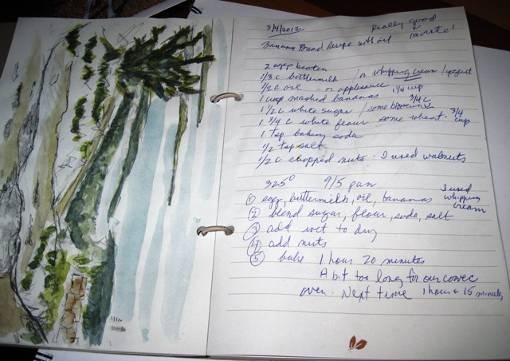 3/4/2013 Really good
Banana Bread Recipe with oil favorite!
2 eggs beaten
1/3 c buttermilk / or whipping cream / yogurt
1/2 c oil - or applesauce 1/4 cup
1 cup mashed bananas 3/4 c
1/2 c white sugar / some brown
1 3/4 c white flour some wheat 3/4 cup
1 tsp baking soda
1/2 tsp salt
1/2 c chopped nuts - I used walnuts
325° 9/5 pan
① egg, buttermilk, oil, bananas I used whipping cream
② blend sugar, flour, soda, salt
③ add wet to dry
④ add nuts
⑤ bake 1 hour 20 minutes
A bit too long for our convec
oven. Next time 1 hour + 15 minutes